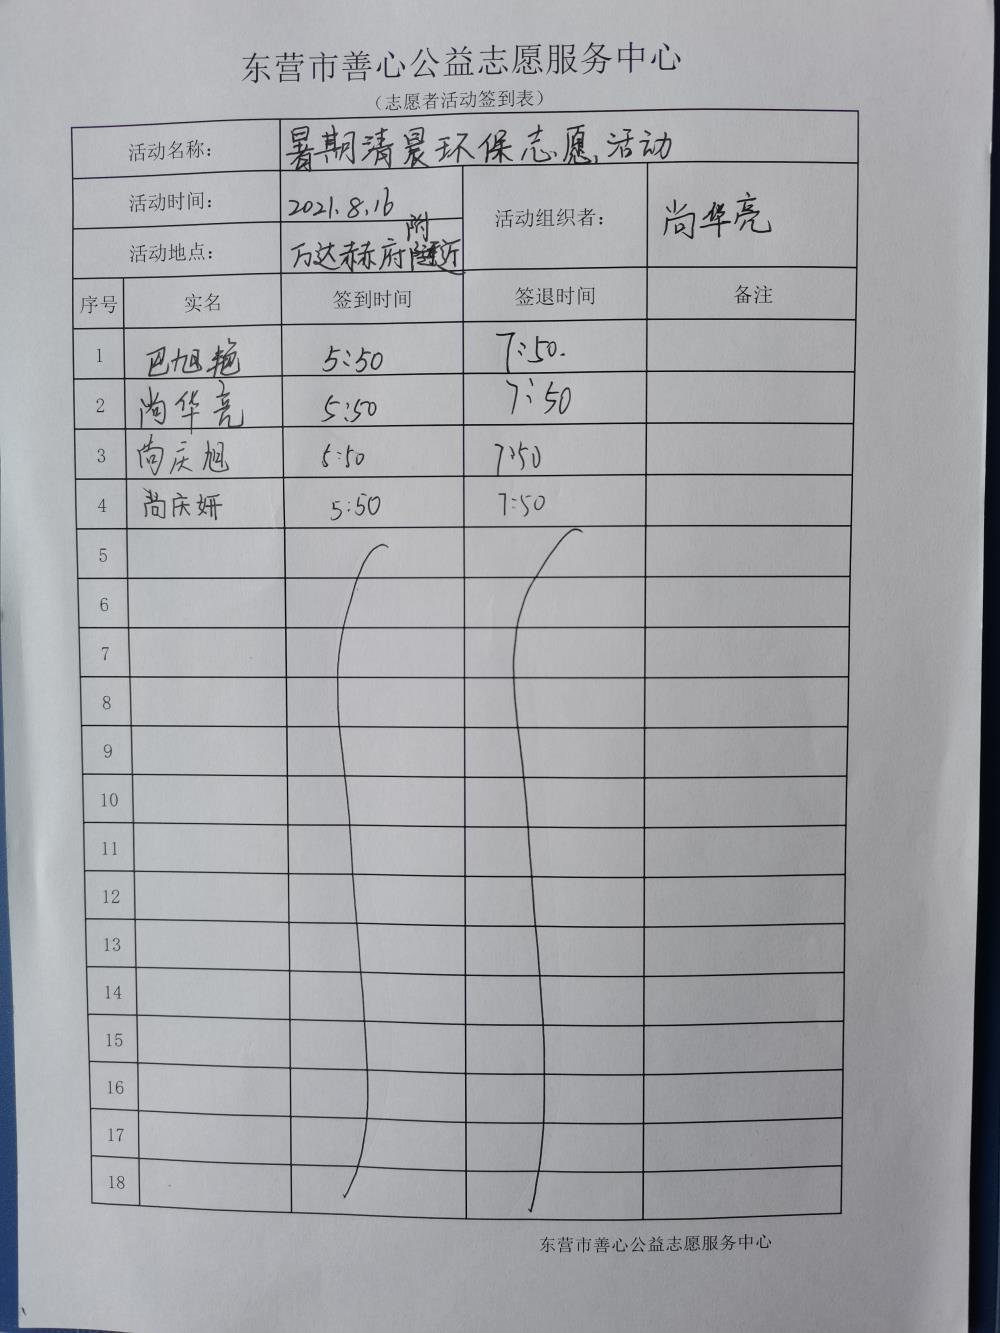 东营市善心公益志愿服务中心
（志愿者活动签到表）
活动名称： 暑期清晨环保志愿活动
活动时间： 2021.8.16 活动组织者： 尚华亮
活动地点： 万达赫府附近
序号 实名 签到时间 签退时间 备注
1 巴旭艳 5:50 7:50.
2 尚华亮 5:50 7:50
3 尚庆旭 5:50 7:50
4 尚庆妍 5:50 7:50
5
6
7
8
9
10
11
12
13
14
15
16
17
18
东营市善心公益志愿服务中心